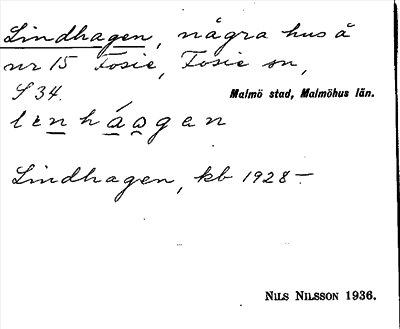 Lindhagen, några hus å
nr 15 Fosie, Fosie sn,
S 34.
Malmö stad, Malmöhus län.
lenháagen
Lindhagen, kb 1928-
NILS NILSSON 1936.